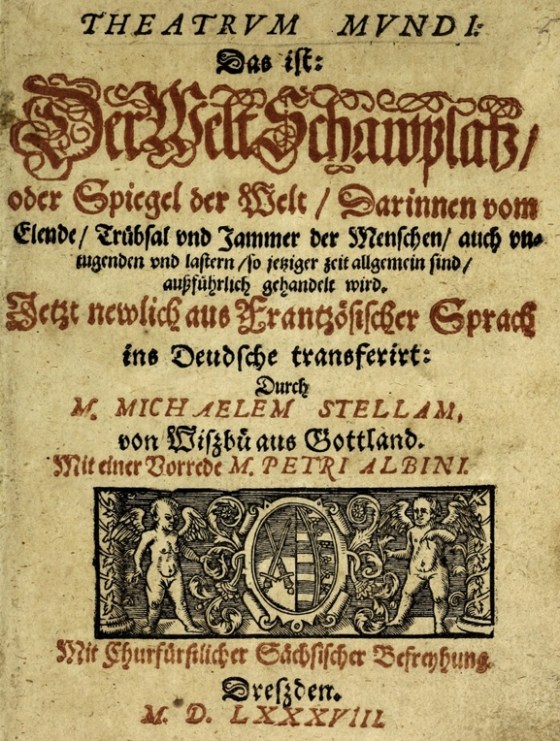 THEATRVM MVNDI:
Das ist:
Der Welt Schawplatz/
oder Spiegel der Welt / Darinnen vom
Elende/ Trübsal vnd Jammer der Menschen/ auch vn-
tugenden vnd lastern /so jetziger zeit allgemein sind/
außführlich gehandelt wird.
Jetzt newlich aus Frantzösischer Sprach
ins Deudsche transferirt:
Durch
M. MICHAELEM STELLAM,
von Wißbü aus Gottland.
Mit einer Vorrede M. PETRI ALBINI.
Mit Churfürstlicher Sächsischer Befreyhung.
Dreßden.
M. D. LXXXVIII.